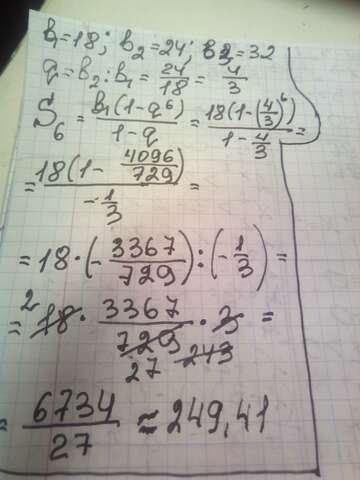 b₁=18; b₂=24; b3=32
q=b₂:b₁=24/18=4/3
S₆=b₁(1-q⁶)/1-q=18(1-(4/3)⁶)/1-4/3=
=18(1-4096/729)/-1/3=
=18·(-3367/729):(-1/3)=
=2 18·3367/729·3=
27 243
=6734/27≈249,41